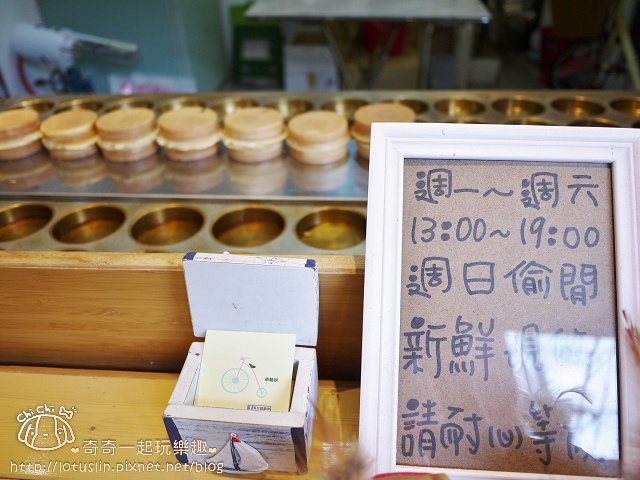 週一～週六
13:00~19:00
週日偷閒
新鮮現做
請耐心等候
Chi Chi
奇奇一起玩樂趣
http://lotuslin.pixnet.net/blog